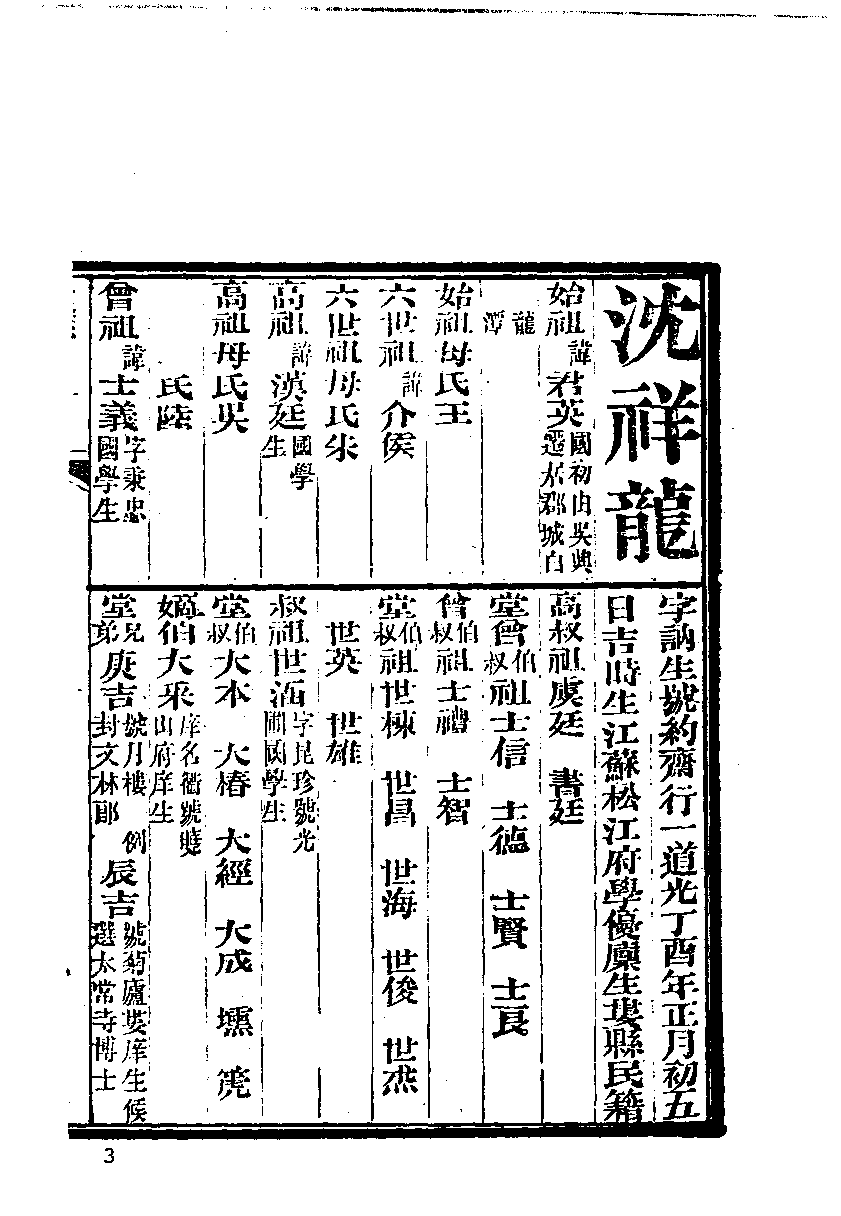 沈祥龍
字訥生號約齋行一道光丁酉年正月初五
日吉時生江蘇松江府學優廩生婁縣民籍
始祖諱君英國初由吳興
遷居郡城白
龍
潭
始祖母氏王
六世祖諱介侯
六世祖母氏朱
高祖諱漢廷國學
生
高祖母氏吳
氏陸
曾祖諱士義字秉忠
國學生
高叔祖虞廷 書廷
堂曾伯
叔祖士信 士德 士賢 士良
曾伯
叔祖士禮 士智
堂伯
叔祖世棟 世昌 世海 世俊 世杰
世英 世雄
叔祖世洒字昆珍號光
圃國學生
堂伯
叔大本 大椿 大經 大成 壎 箎
嫡伯大采庠名衢號
山府庠生
堂兄
弟庚吉號月樓 例
封文林郎
辰吉號菊廬婁庠生候
選太常寺博士
3